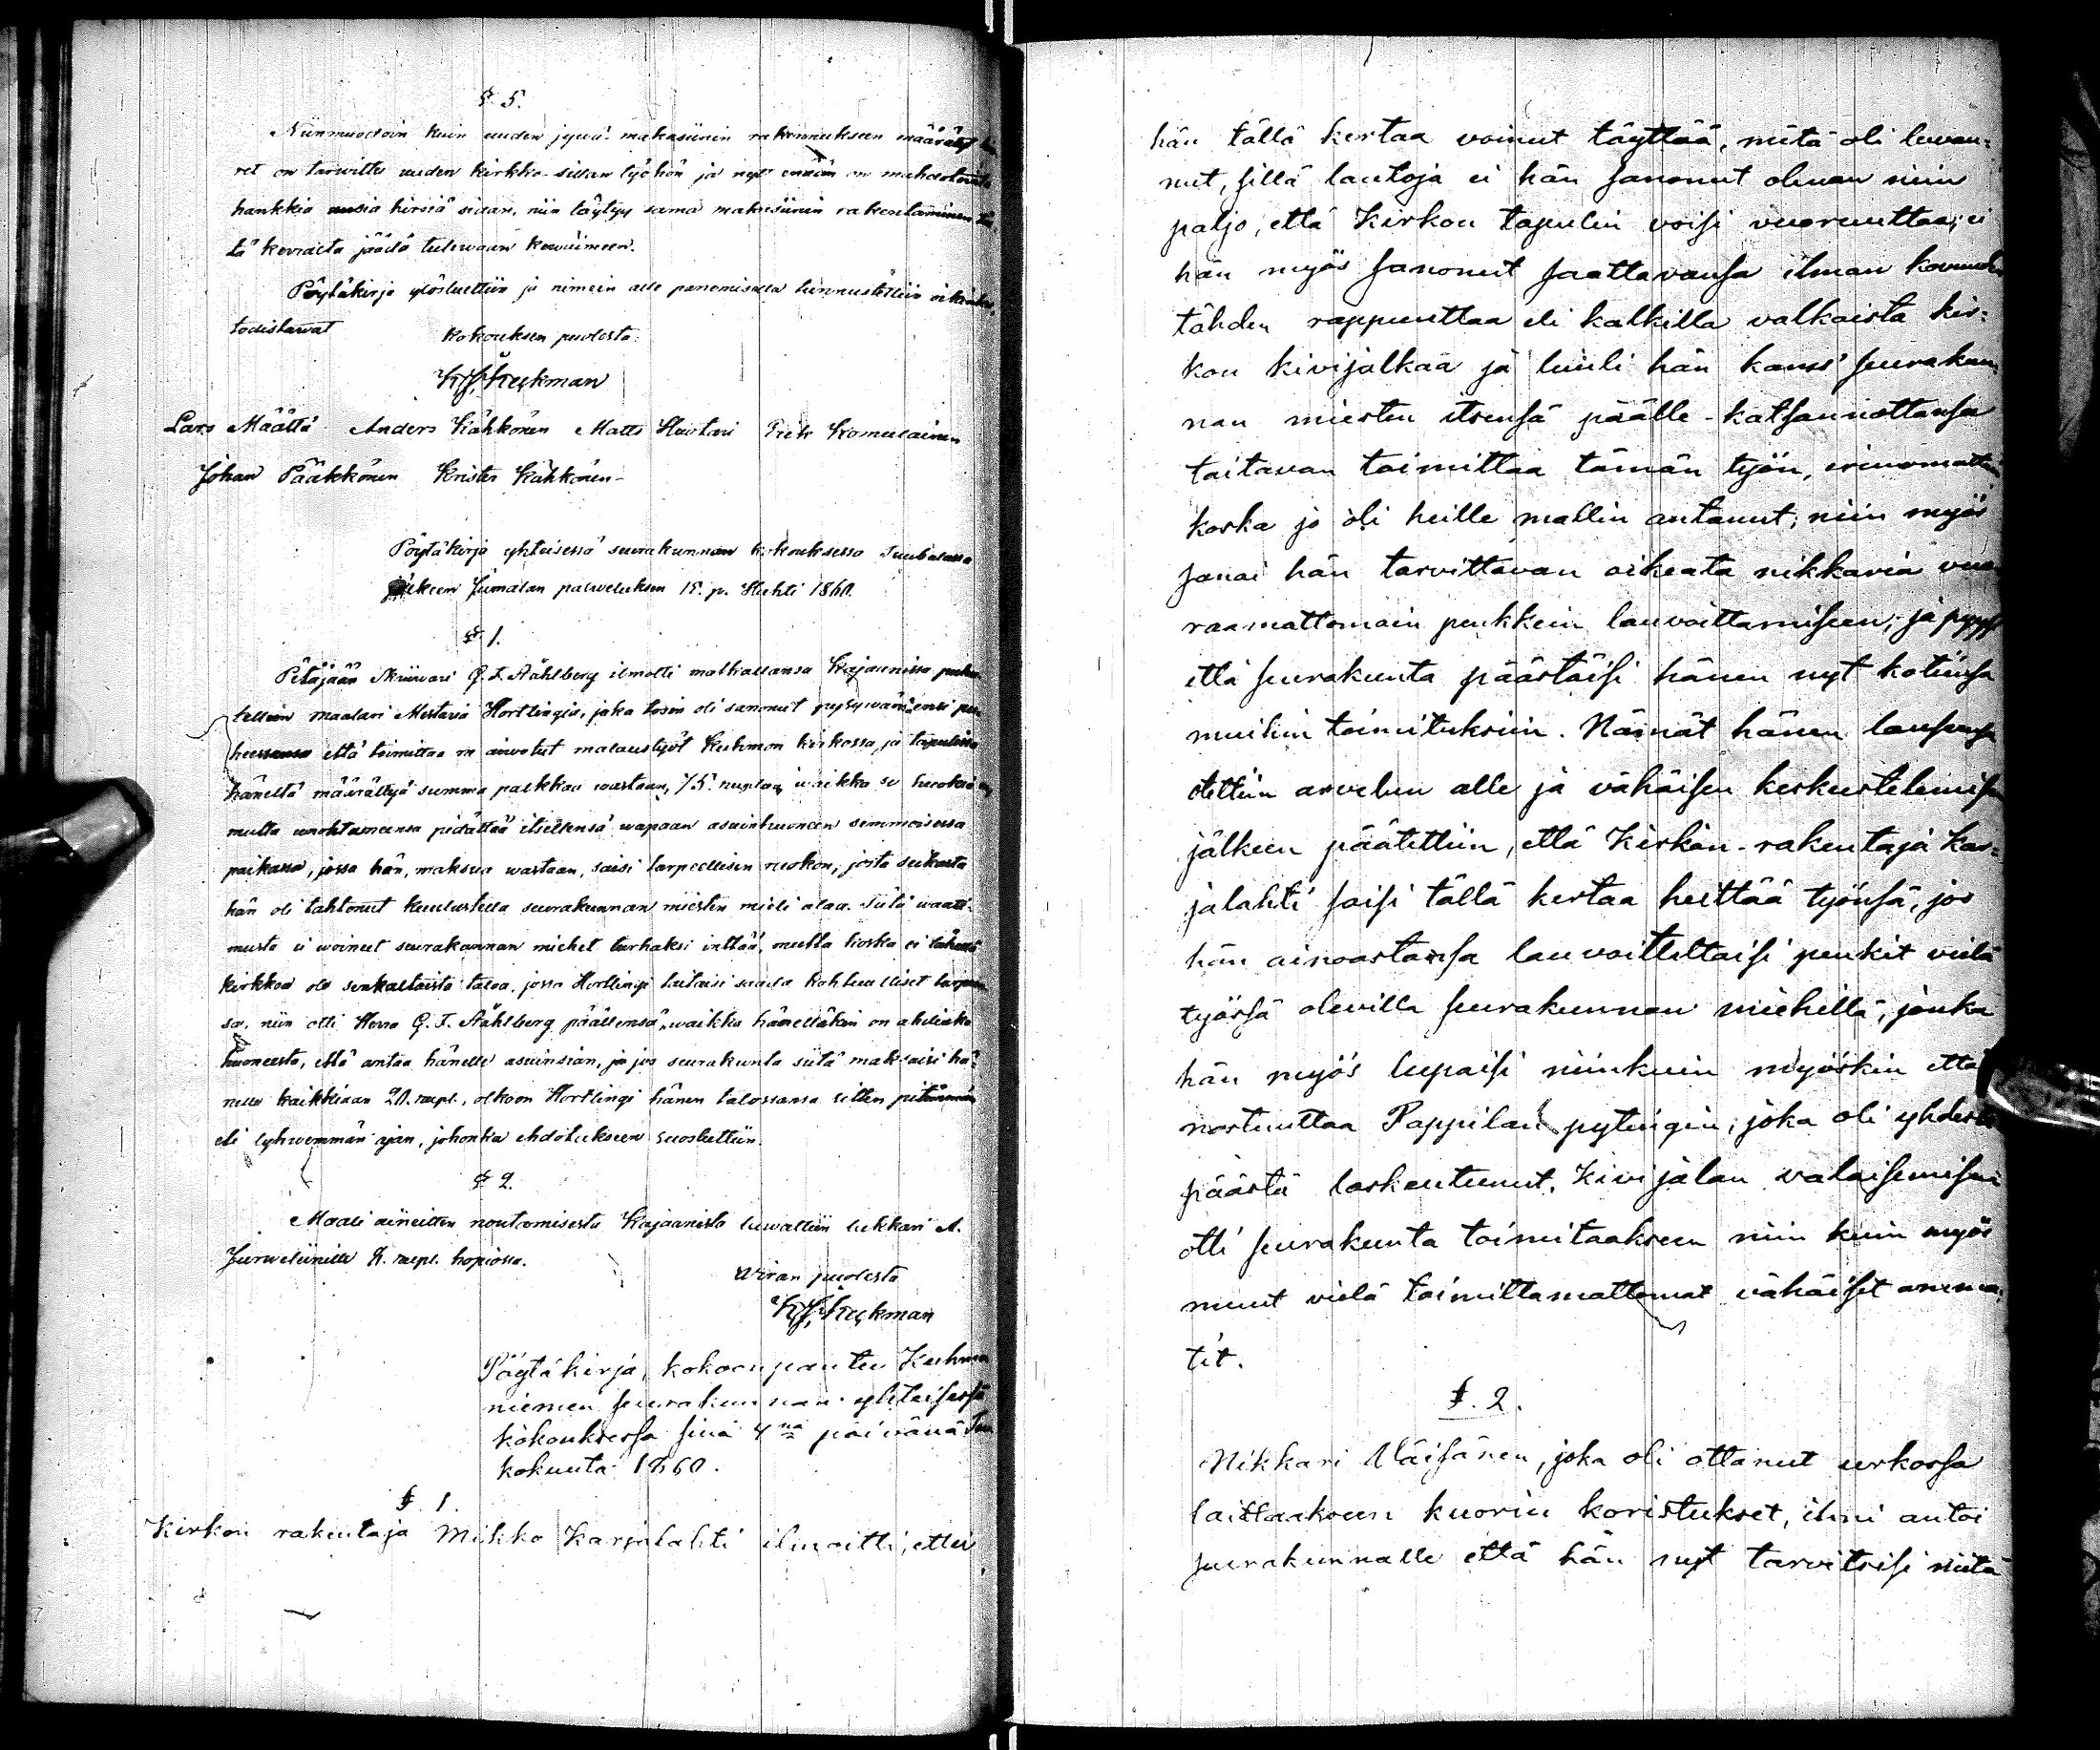 § 5.
Niinmuodoin kuin uuden jywä-makasiinin rakennukseen määrätyt hir-
ret on tarwittu uuden kirkko-sillan työhön ja nyt ennään on mahdotointa
hankkia uusia hirsiä siaan, niin täytyy sama makasiinin rakentaminen täl-
tä kerralta jäädä tulewaan kewäimeen.
Pöytäkirja ylösluettiin ja nimein alle panemisella tunnustettiin oikiaksi,
todistawat
Kokouksen puolesta:
Lars Määttä Anders Kähkönen Matts Huotari Petr Komulainen
Johan Pääkkönen Krister Kähkönen
Pöytäkirja yhteisessä seurakunnan kokouksessa Tuubalassa
jälkeen Jumalan palweluksen 15. p. Huhti 1860.
§ 1.
Pitäjään Skriiwari G. F. Åhlberg ilmotti matkallansa Kajaanissa puhu-
tellein maalari Mestaria Hortlingia, joka tosin oli sanonut pysywänsä ensi pu-
heessansa että toimittaa ne aiwotut malaustyöt Kuhmon kirkossa ja tapulissa
häneltä määrättyä summa palkkaa wastaan, 75. ruplaa, waikka se huokea on,
mutta unohtaneensa pidättää itsellensä wapaan asuinhuoneen semmoisessa
paikassa, jossa hän, maksua wastaan, saisi tarpeellisen ruokon, josta seikasta
hän oli tahtonut kuulustella seurakunnan miesten mieli alaa. Tätä waati-
musta ei woineet seurakunnan miehet turhaksi inttää, mutta koska ei lähellä
kirkkoa ole senkaltaista taloa, jossa Hortlingi taitaisi saada kohtuulliset tarpeen-
sa, niin otti Herra G. F. Åhlberg päällensä, waikka hänelläkin on ahdinko
huoneesta, että antaa hänelle asuinsian, ja jos seurakunta siitä maksaisi hä-
nelle kaikkiaan 20. rupl., olkoon Hortlingi hänen talossansa sitten pitemmän
eli lyhwemmän ajan, johonka ehdotukseen suostuttiin.
§ 2.
Maali aineitten noutamisesta Kajaanista luwattiin lukkari A.
Jurweliinille 8. rupl. hopiossa.
Wiran puolesta
Pöytäkirja, kokoonpantu Kuhmo-
niemen seurakunnan yhteisessä
kokouksessa sinä 4nä päivänä Tou-
kokuuta 1860.
§. 1.
Kirkon rakentaja Mikko Karjalahti ilmoitti, ettei
hän tällä kertaa voinut täyttää, mitä oli luvan-
nut, sillä lautoja ei hän sanonut olevan niin
paljo, että Kirkon tapulin voisi vuoruuttaa; ei
hän myös sanonut saattavansa ilman kovuuden
tähden rappuuttaa eli kalkilla valkaista kir-
kon kivijalkaa ja luuli hän kans' seurakun-
nan miesten itsensä päälle-katsannottansa
taitavan toimittaa tämän työn, erinomattain
koska jo oli heille mallin antanut; niin myös
sanoi hän tarvittavan oikeata nikkaria vuo-
raamattomain penkkein lauvoittamiseen; ja pyysi
että seurakunta päästäisi hänen nyt kotiinsa
muihin toimituksiin. Nämät hänen lausunsa
otettiin arvelun alle ja vähäisen keskustelemisen
jälkeen päätettiin, että Kirkon-rakentaja Kar-
jalahti saisi tällä kertaa heittää työnsä, jos
hän ainoastansa lauvoitteltaisi penkit vielä
työssä olevilla seurakunnan miehillä, jonka
hän myös lupaisi niinkuin myöskin että
nostuuttaa Pappilan pytingin, joka oli yhdestä
päästä laskeutunut. Kivijalan valaisemisen
otti seurakunta toimitaakseen niin kuin myös
muut vielä toimittamattomat vähäiset amma-
tit.
§. 2.
Nikkari Väisänen, joka oli ottanut urkossa
laittaakseen kuorin koristukset, ilmi antoi
seurakunnalle että hän nyt tarvitsisi niitä